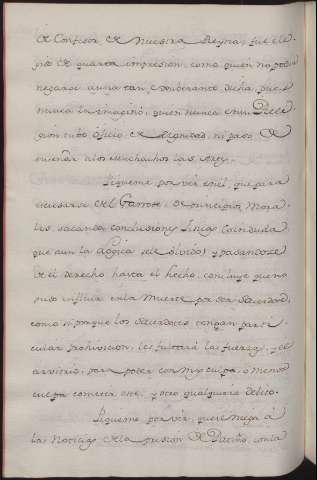 de Confesor de Nuestra Reyna, fue ele-
de quarta impresion, como quien no podia
negarse a una tan exoberante dicha, pues
nunca la imaginó, quien nunca en su Rele-
gion tubo oficio de dignidad, ni paso de
enseñar a los muchachos las Artes.
Sigueme por ver en el, que para
escusarse del Garrote, de principios Mora-
les, sacando conclusiones
que aun la Logica se le olvidó; y pasandose
de el derecho hasta el hecho, concluye que no
pudo influir en la Muerte por ser Sacerdote,
como si porque los Sacerdotes tengan parti-
cular prohivicion, les faltará las fuerzas, y el
arvitrio, para poder con mas culpa, o menos
culpa cometer ese, y otro qualquiera delito.
Sigueme por ver, que se niega á
las Noticias de la prision de Patiño, con la